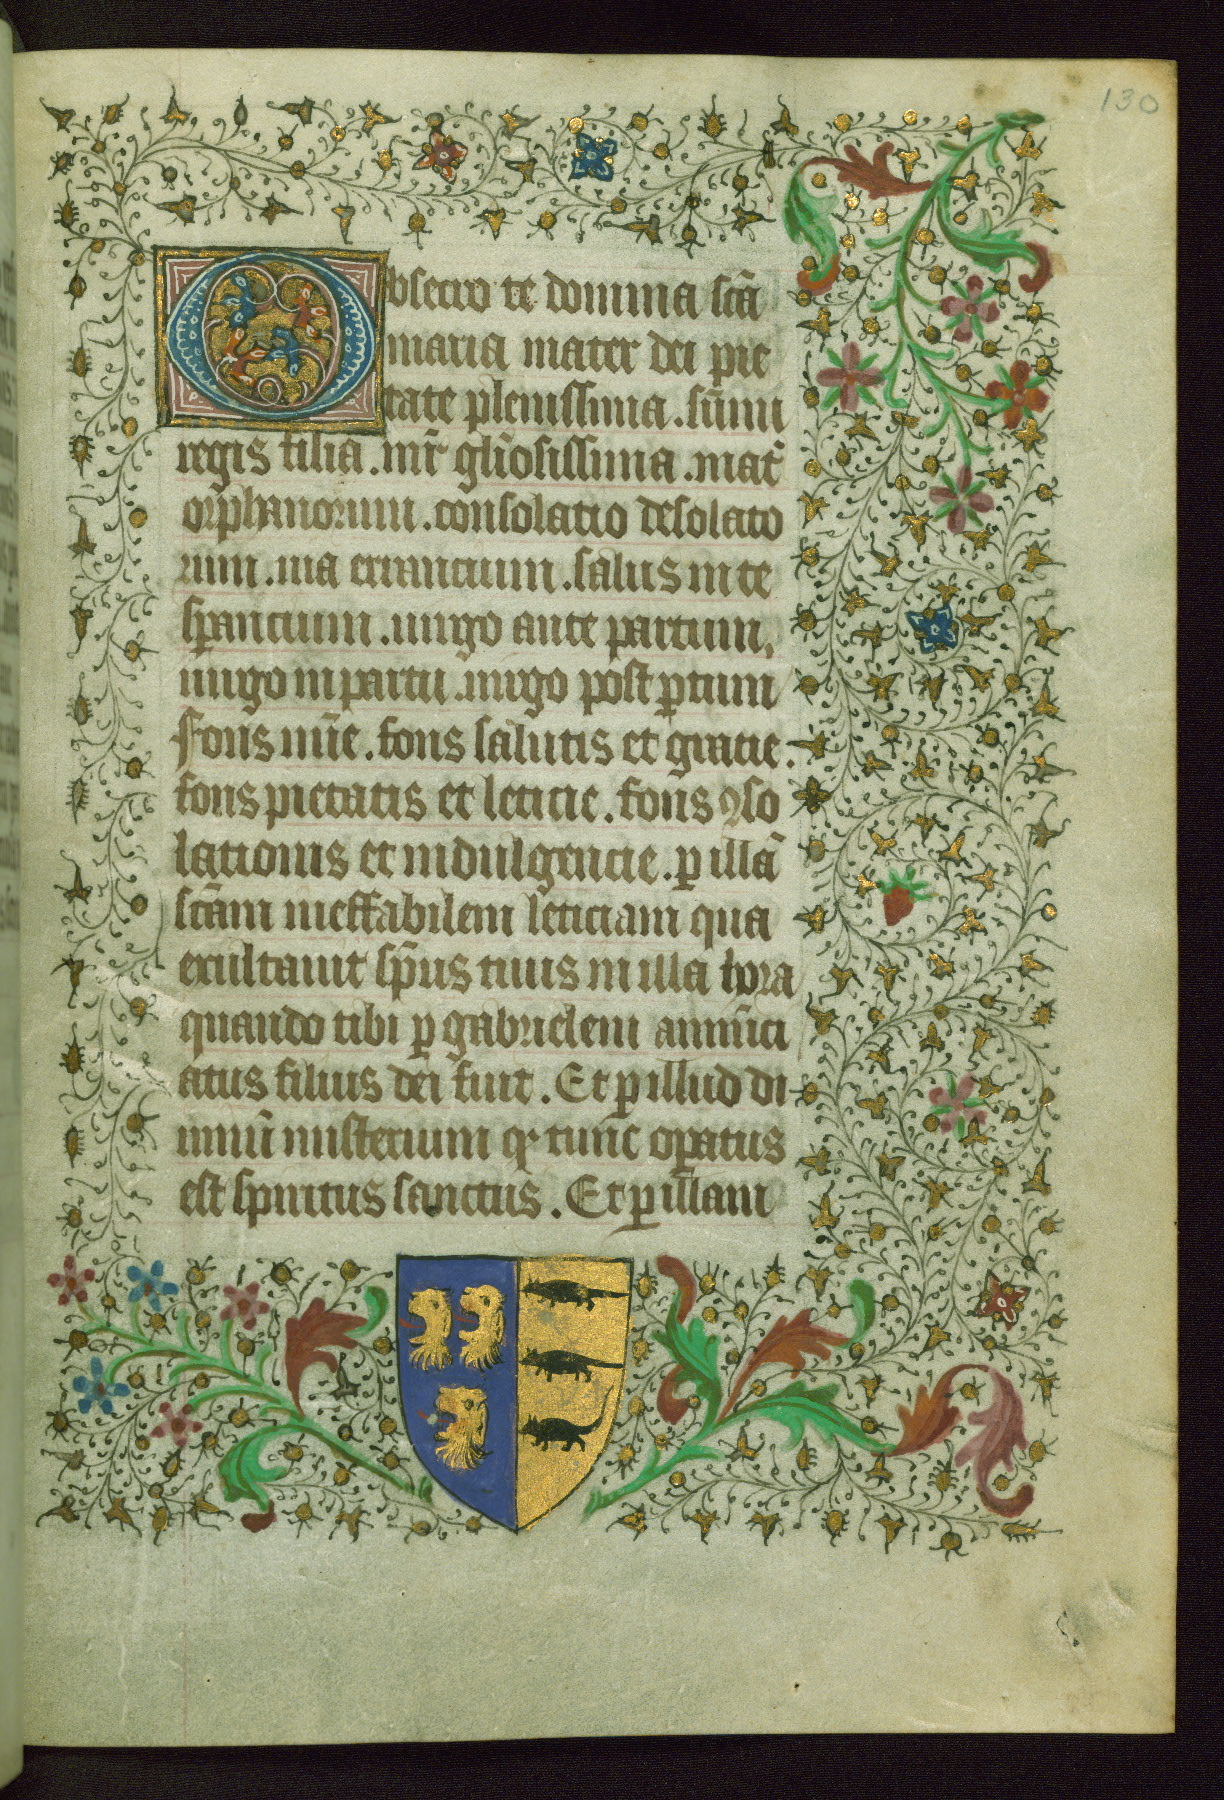 130
Obsecro te domina scā
maria mater dei pie
tate plenissima . sūmi
regis filia . mr̄ gl̄iosissima . mat̄
orphanorum . consolatio desolato
rum . uia errancium . salus in te
sꝑancium . uirgo ante partum,
uirgo in partu . uirgo post ꝑtum
Fons mīe . fons salutis et gracie .
fons pietatis et leticie . fons ꝯso
lationis et indulgencie . ꝑ illā
scām ineffabilem leticiam qua
exultauit sp̄us tuus in illa hora
quando tibi ꝑ gabrielem annūci
atus filius dei fuit . Et ꝑ illud di
uinū misterium qꝛ tunc oꝑatus
est spiritus sanctus . Et ꝑ illam